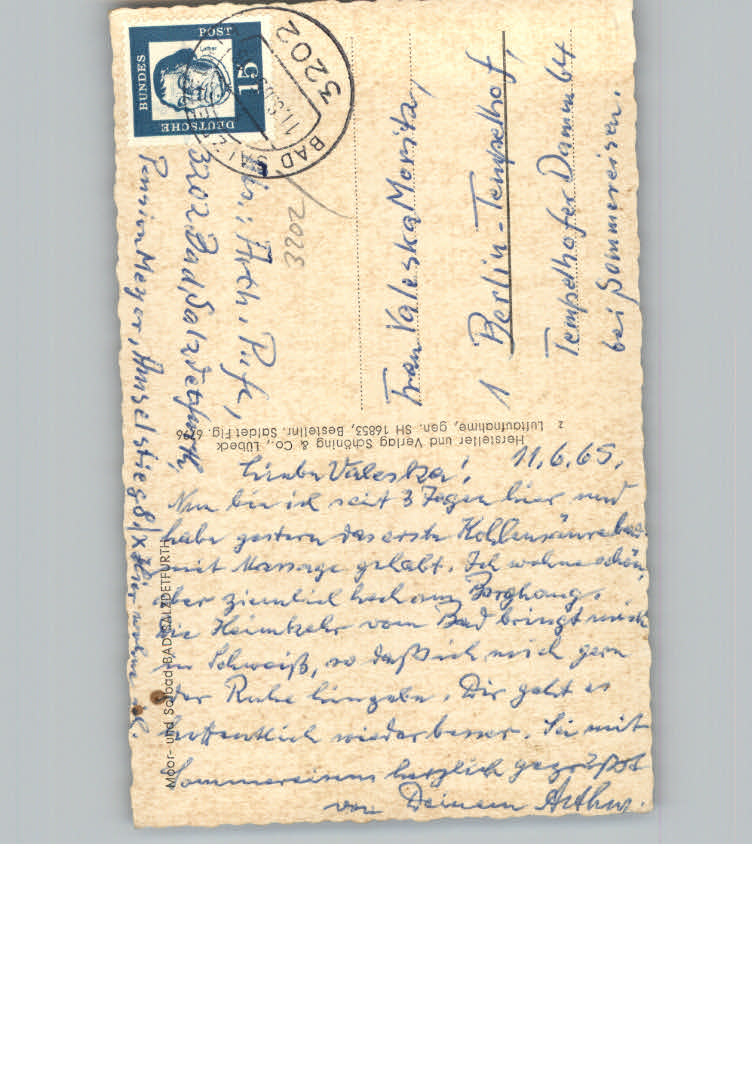 DEUTSCHE
BUNDES
POST
15
Luther
3202
BAD SALZDETFURTH
11.6.65
Abs.: Arth. Rufe,
3202 Bad Salzdetfurth,
Pension Meyer, Amselstieg 8
3202
Frau Valeska Moritz,
1 Berlin-Tempelhof,
Tempelhofer Damm 64
bei Sommereisen.
Hersteller und Verlag Schöning & Co., Lübeck
z Luftaufnahme, gen. SH 16853, Bestellnr. Saldet Fig. 6796
Moor- und Solbad BAD SALZDETFURTH
11.6.65.
Liebe Valeska!
Nun bin ich seit 3 Tagen hier und
habe gestern das erste Kohlensäurebad
mit Massage gehabt. Ich wohne schön,
aber ziemlich hoch am Berghang.
Die Heimkehr vom Bad bringt mich
in Schweiß, so daß ich mich gern
der Ruhe hingebe. Dir geht es
hoffentlich wieder besser. Sei mit
Sommereisens herzlich gegrüßt
von Deinem Arthur.
x Hier wohne ich.